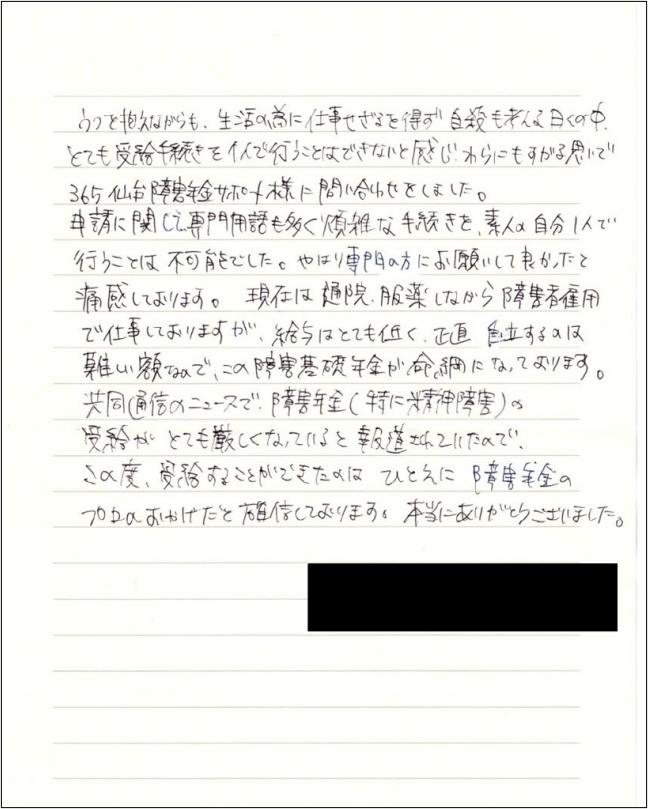 うつを抱えながらも、生活の為に仕事せざるを得ず自殺も考える日々の中、
とても受給手続きを1人で行うことはできないと感じ、わらにもすがる思いで
365仙台障害年金サポート様に問い合わせをしました。
申請に関して、専門用語も多く煩雑な手続きを、素人の自分1人で
行うことは不可能でした。やはり専門の方にお願いして良かったと
痛感しております。 現在は通院、服薬しながら障害者雇用
で仕事しておりますが、給与はとても低く、正直 自立するのは
難しい額なので、この障害基礎年金が命綱になっております。
共同通信のニュースで、障害年金(特に精神障害)の
受給がとても厳しくなっていると報道されていたので、
この度、受給することができたのは ひとえに 障害年金の
プロのおかげだと確信しております。本当にありがとうございました。